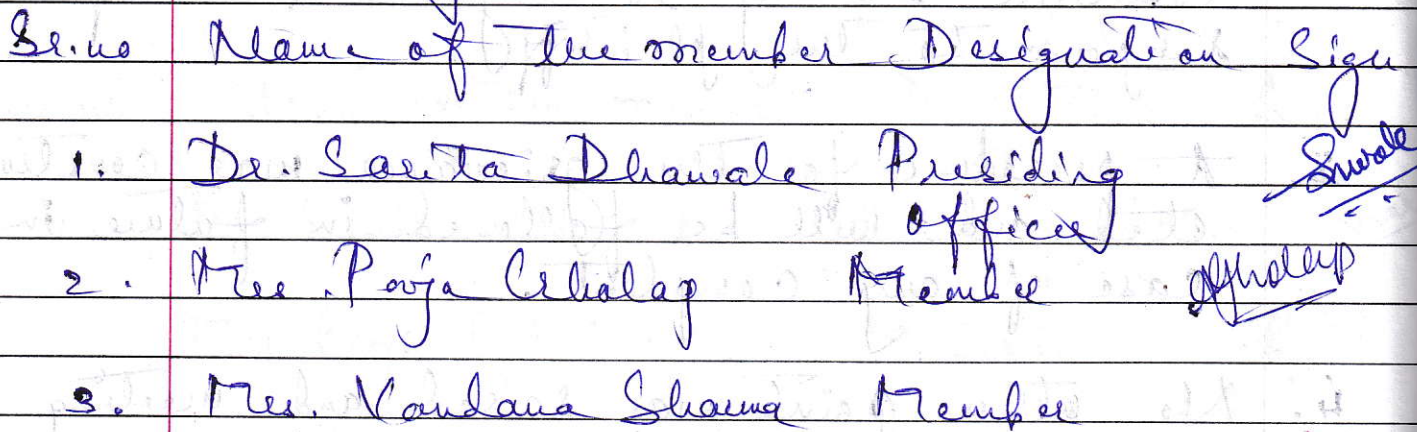 Sr.no Name of the member Designation Sign
1. Dr. Sarita Dhawale Presiding
officer
2. Mrs. Pooja Gholap Member Gholap
3. Mrs. Vandana Sharma Member